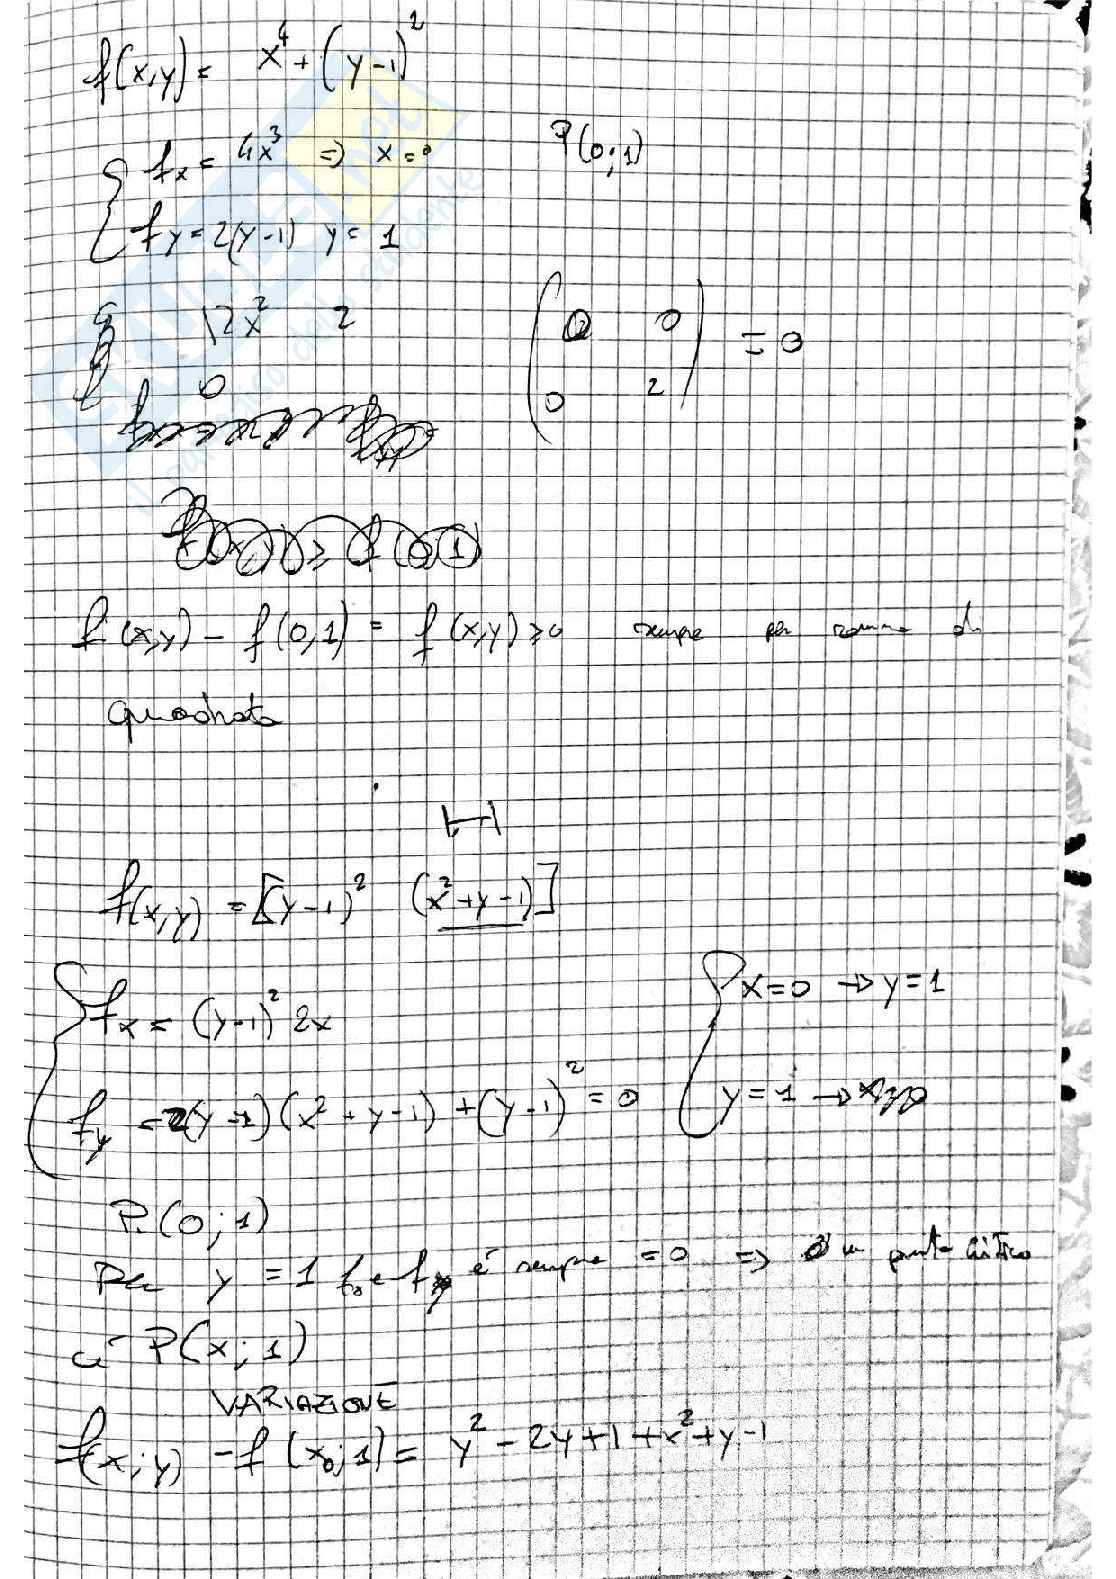 f(x,y) = x⁴ + (y-1)²
{ fx = 4x³ => x=0 P(0;1)
fy = 2(y-1) y = 1
12x² 2 ( 0 0 ) = 0
0 0 2
f(x,y) - f(0,1) = f(x,y) ≥ 0 sempre per somma di
quadrato
H
f(x,y) = [(y-1)² (x²+y-1)]
{ fx = (y-1)² 2x { x=0 → y=1
fy = 2(y-1)(x²+y-1) + (y-1)² = 0 y=1 →
P(0;1)
Per y = 1 e fy é sempre = 0 => punto critico
P(x;1)
VARIAZIONE
f(x;y) - f(x₀;1) = y² - 2y+1+x²+y-1